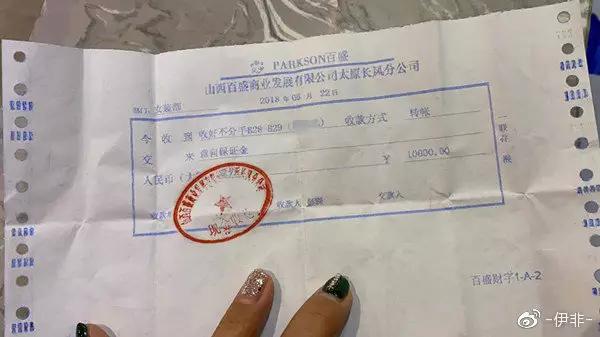 PARKSON百盛
山西百盛商业发展有限公司太原长风分公司
部门：女装部
2018 年 05 月 22日
今 收 到 收好不分手B28 829 收款方式 转帐
交 来 意向保证金 ￥ 10000.00
人民币（大
收款 收款人 交款人
一联存根
百盛财字1-A-2
-伊非-